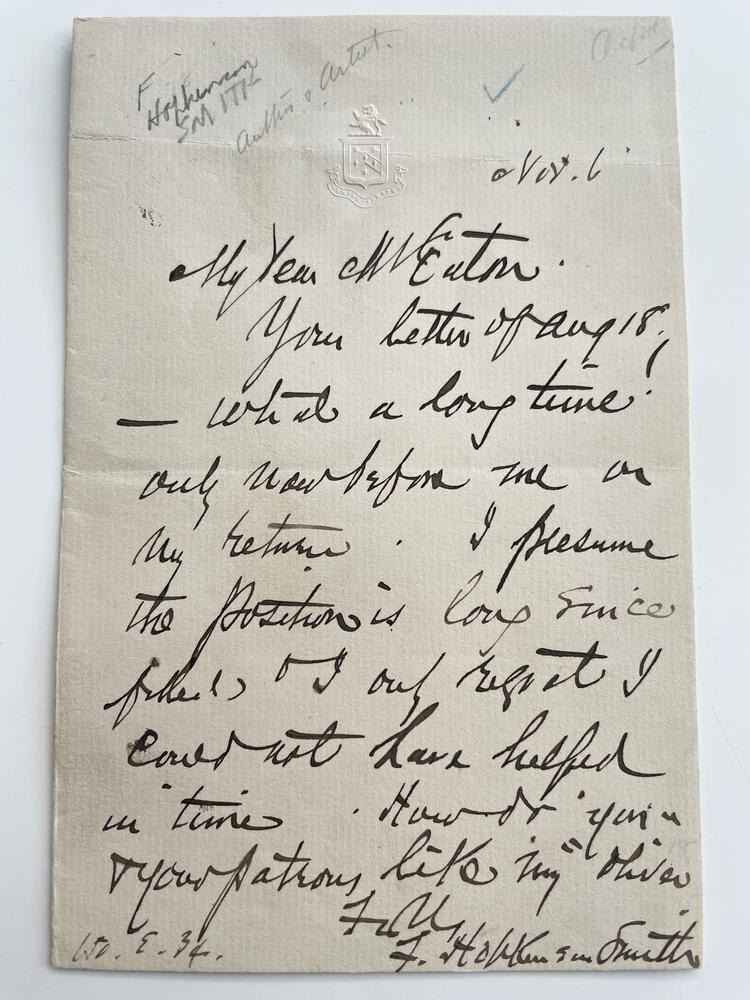 F
Hopkinson
Smith
Author & Artist.
Nov. 6
My Dear Mr Eaton.
Your letter of Aug 18,
— What a long time!
only now before me on
my return. I presume
the position is long since
filled & I only regret I
could not have helped
in time. How do you
& your patrons like my "Oliver
F. Hopkinson Smith
150. E. 34.